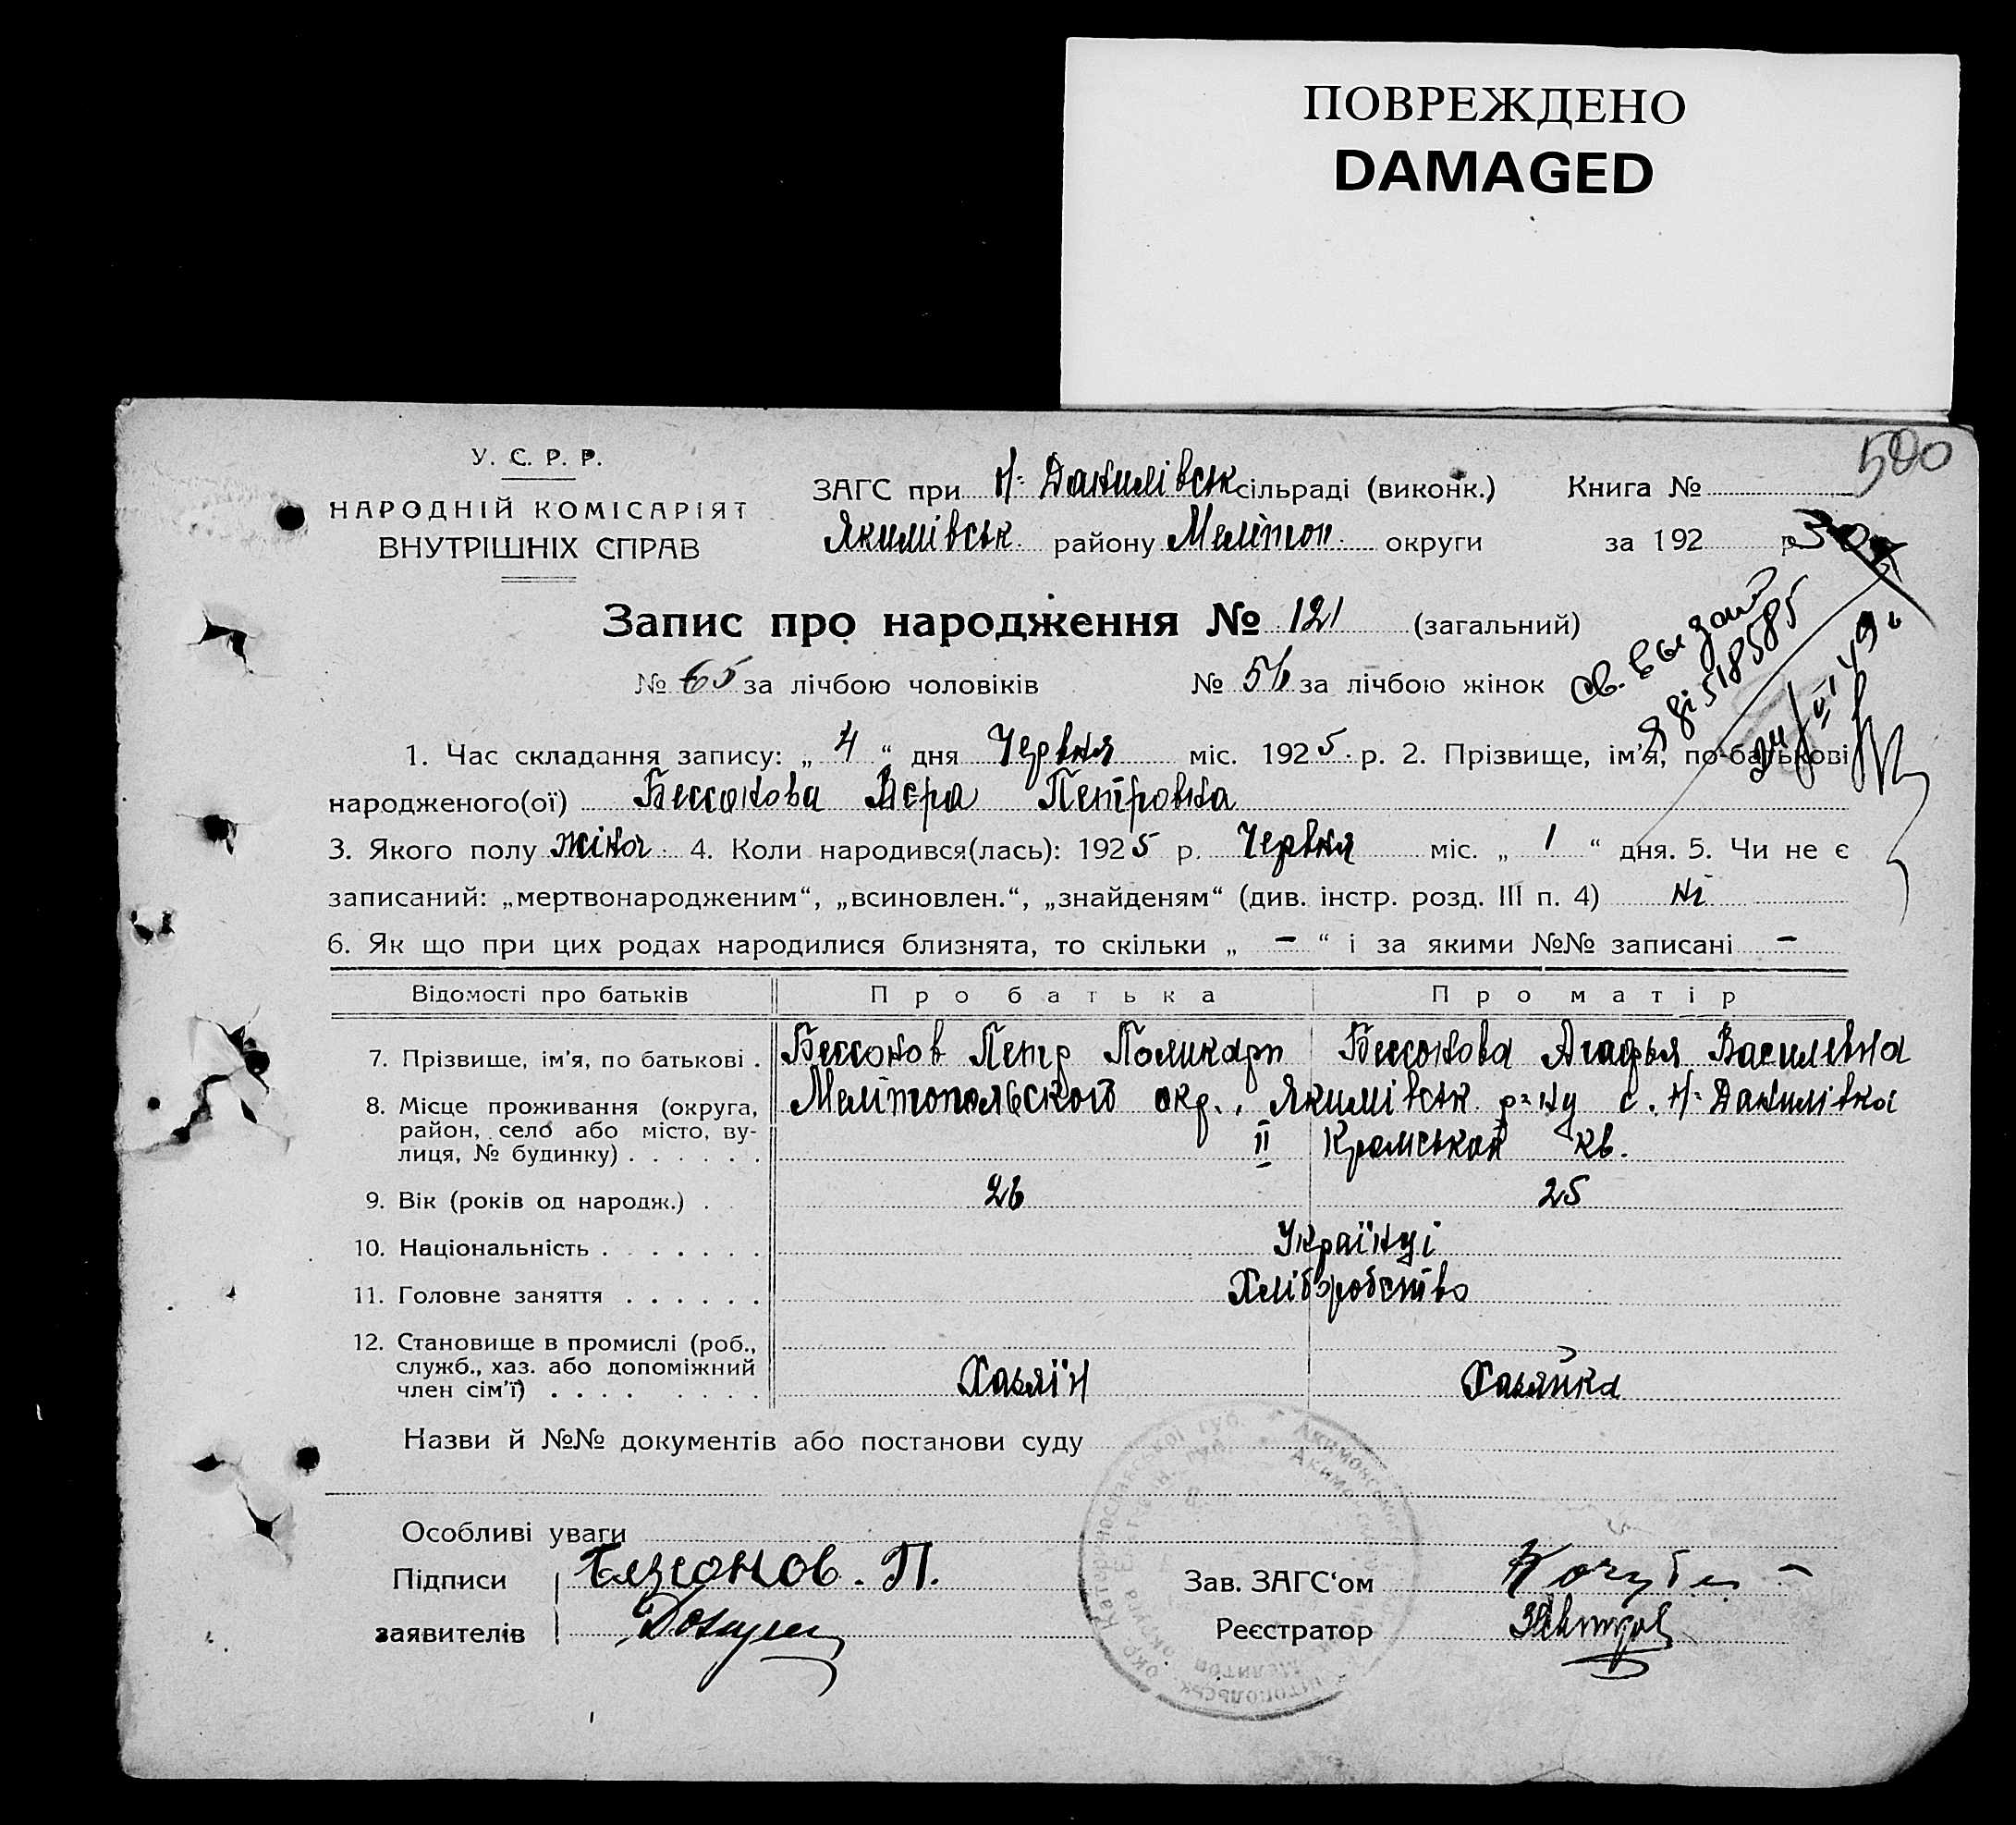 ПОВРЕЖДЕНО
DAMAGED
500
У. С. Р. Р.
НАРОДНІЙ КОМІСАРІЯТ
ВНУТРІШНІХ СПРАВ
ЗАГС при Н-Данилівськ сільраді (виконк.) Книга №
Якимівськ. району Мелітоп. округи за 192 р.
Запис про народження № 121 (загальний)
№ 65 за лічбою чоловіків № 56 за лічбою жінок
св. выдан
518585
1. Час складання запису: „ 4 “ дня Червня міс. 1925. р. 2. Прізвище, ім'я, по-батькові
народженого(ої) Бессонова Вєра Петровна
3. Якого полу жіноч. 4. Коли народився(лась): 1925 р. Червня міс. „ 1 “ дня. 5. Чи не є
записаний: „мертвонародженим“, „всиновлен.“, „знайденям“ (див. інстр. розд. III п. 4) Ні
6. Як що при цих родах народилися близнята, то скільки „ - “ і за якими №№ записані -
Відомості про батьків Про батька Про матір
7. Прізвище, ім'я, по батькові . Бессонов Петр Поликарп Бессонова Агафья Василевна
8. Місце проживання (округа, район, село або місто, вулиця, № будинку) . . . . . . Мелітопольского окр., Якимівськ. р-ну с. Н-Данилівка
II Кромськой кв.
9. Вік (років од народж.) . . 26 25
10. Національність . . . . . . . Українці
11. Головне заняття . . . . . . Хліборобство
12. Становище в промислі (роб., служб., хаз. або допоміжний член сім'ї) . . . . . . . . Хазяїн Хазяйка
Назви й №№ документів або постанови суду
Особливі уваги
Підписи Безсонов. П. Зав. ЗАГС‘ом Кочубей
заявителів Реєстратор